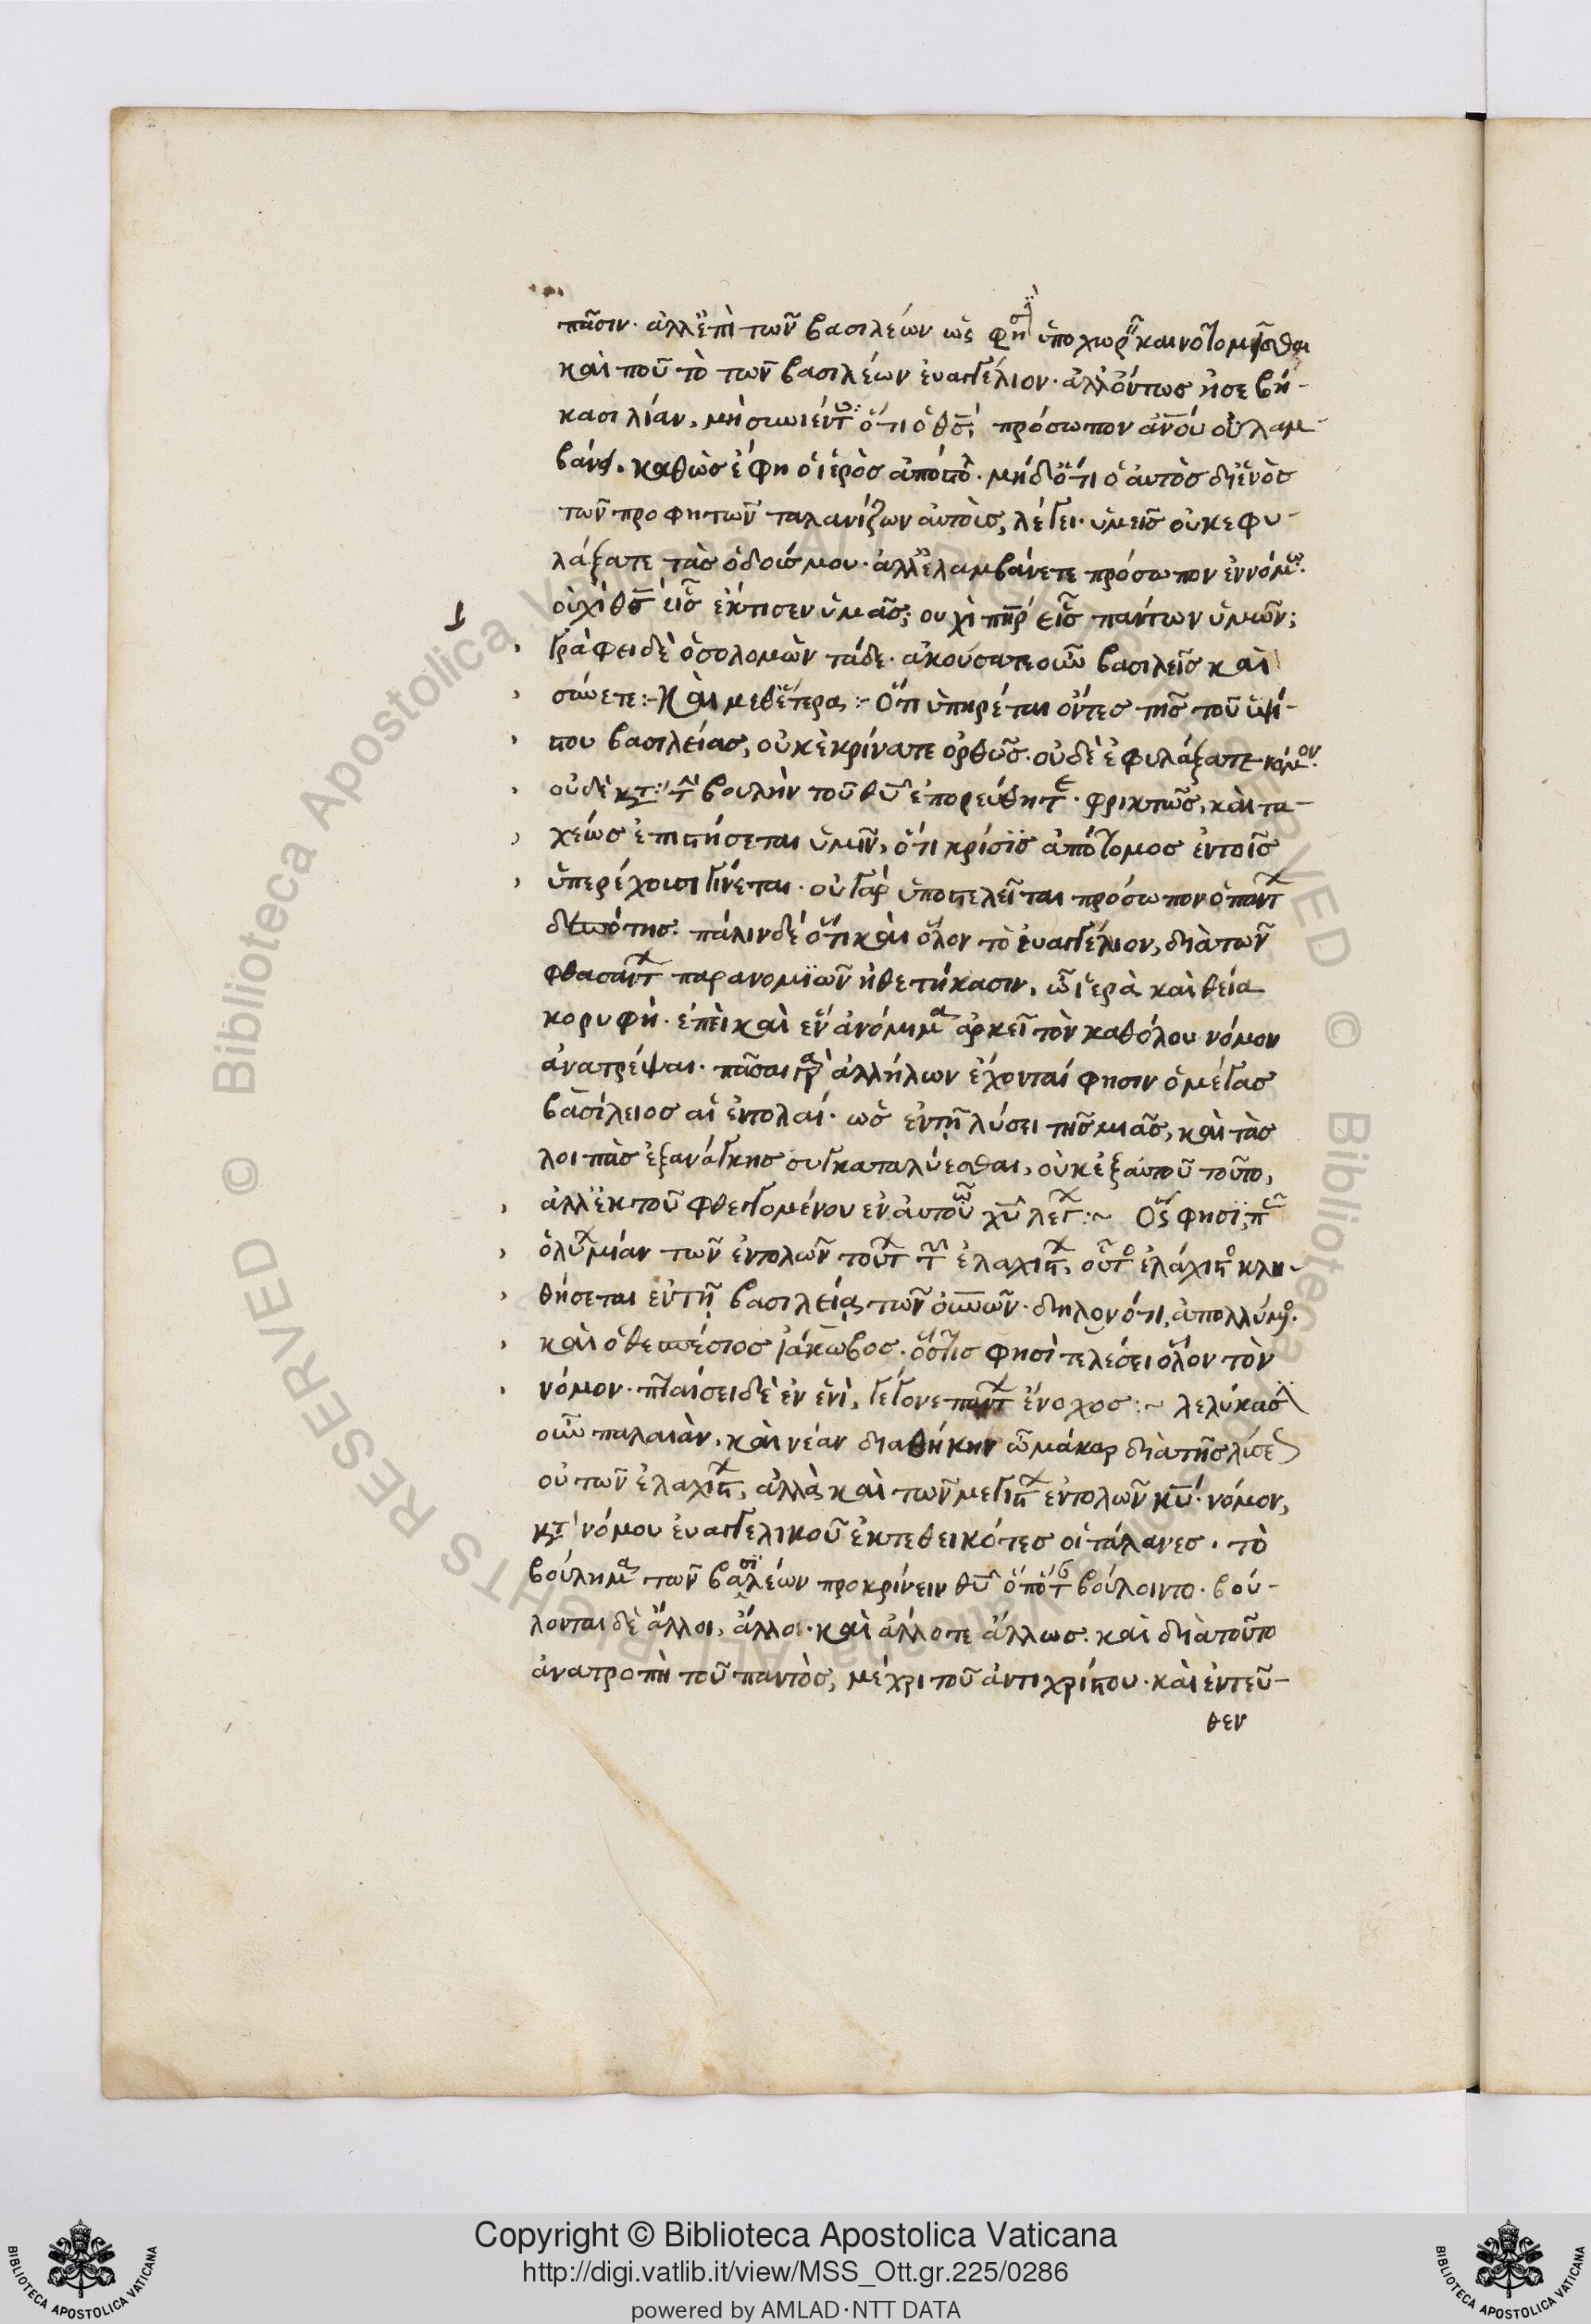 πᾶσιν. ἀλλ' ἐπὶ τῶν βασιλέων ὡς φησὶ ὑποχωρεῖ καινοτομεῖσθαι
καὶ ποῦ τὸ τῶν βασιλέων ἐυαγγέλιον. ἀλλ' ὄντως ἠσεβή-
κασι λίαν, μὴ συνιέντες ὅτι ὁ θς πρόσωπον ἀνου οὐ λαμ-
βάνει. καθὼς ἔφη ὁ ἱερὸς ἀπόστολ. μὴ δ' ὅτι ὁ αὐτὸς δι' ἑνὸς
τῶν προφητῶν ταλανίζων αὐτοὺς, λέγει. ὑμεῖς οὐκ ἐφυ-
λάξατε τὰς ὁδούς μου. ἀλλ' ἐλαμβάνετε πρόσωπον ἐν νόμω.
οὐχὶ θς εἷς ἔκτισεν ὑμᾶς; ουχὶ πηρ εἷς πάντων ὑμῶν;
γράφει δὲ ὁ σολομὼν τάδε. ἀκούσατε οὖν βασιλεῖς καὶ
σύνετε :- Καὶ μεθ' ἕτερα :- Ὅτι ὑπηρέται ὄντες τῆς τοῦ ὑψί-
στου βασιλείας, οὐκ ἐκρίνατε ὀρθῶς. οὐδὲ ἐφυλάξατε νόμον.
οὐδὲ κτ τὴν βουλὴν τοῦ θυ ἐπορεύθητε. φρικτῶς, καὶ τα-
χέως ἐπιστήσεται ὑμῖν, ὅτι κρίσις ἀπότομος ἐν τοῖς
ὑπερέχουσι γίνεται. οὐ γὰρ ὑποστελεῖται πρόσωπον ὁ πάντων
δεσπότης. πάλιν δὲ ὅτι καὶ ὅλον τὸ ἐυαγγέλιον, διὰ τῶν
φθασάντων παρανομιῶν ἠθετήκασιν, ὦ ἱερὰ καὶ θεία
κορυφὴ. ἐπεὶ καὶ ἓν ἀνόμημα ἀρκεῖ τὸν καθόλου νόμον
ἀνατρέψαι. πᾶσαι γὰρ ἀλλήλων ἔχονταί φησιν ὁ μέγας
βασίλειος αἱ ἐντολαί. ὡς ἐν τῇ λύσει τῆς μιᾶς, καὶ τὰς
λοιπὰς ἐξ ανάγκης συγκαταλύεσθαι, οὐκ ἐξ αὐτοῦ τοῦτο,
ἀλλ' ἐκ τοῦ φθεγγομένου ἐν αὐτῷ χυ λέγων :~ Ὃς φησὶ,
ὁ λύων μίαν τῶν ἐντολῶν τούτων τῶν ἐλαχίστων, οὗτος ἐλάχιστος κλη-
θήσεται ἐν τῇ βασιλείᾳ τῶν ουνων. δηλονότι, ἀπολλύμενος.
καὶ ὁ θεσπέσιος ἰάκωβος. ὅστις φησὶ τελέσει ὅλον τὸν
νόμον. πταίσει δὲ ἐν ἑνὶ, γέγονε πάντων ἔνοχος :~ λελύκασι
οὖν παλαιὰν, καὶ νέαν διαθήκην ὦ μάκαρ διὰ τῆς λύσεως
οὐ τῶν ἐλαχίστων, ἀλλὰ καὶ τῶν μεγίστων ἐντολῶν κυ. νόμον,
κτ νόμου ἐυαγγελικοῦ ἐκτεθεικότες οἱ τάλανες. τὸ
βούλημα τῶν βασιλέων προκρίνειν θυ ὁπότε βούλοιντο. βού-
λονται δὲ ἄλλοι, ἄλλα. καὶ ἄλλοτε ἄλλως. καὶ διὰ τοῦτο
ἀνατροπὴ τοῦ παντὸς, μέχρι τοῦ ἀντιχρίστου. καὶ ἐντεῦ-
θεν
Copyright © Biblioteca Apostolica Vaticana
http://digi.vatlib.it/view/MSS_Ott.gr.225/0286
powered by AMLAD·NTT DATA